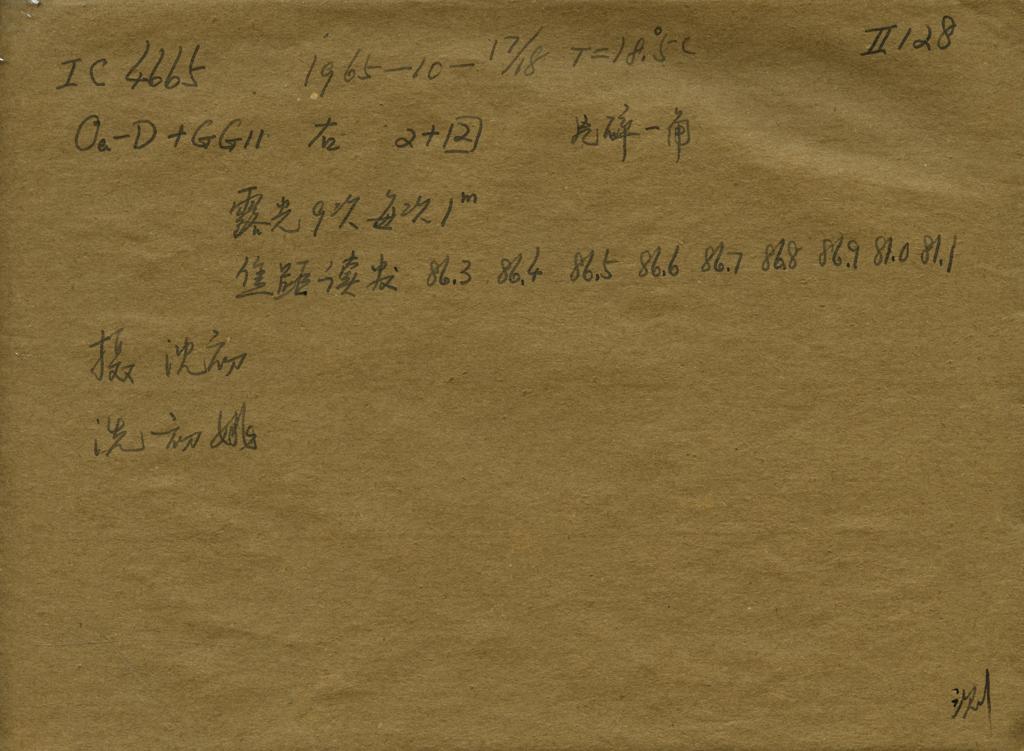 IC 4665 1965-10-17/18 T=18.°5C II 128
Oa-D+GG11 右 2+12 已碎一角
露光9次每次1ᵐ
焦距读数 86.3 86.4 86.5 86.6 86.7 86.8 86.9 87.0 87.1
摄 沈初
洗 初姚
测